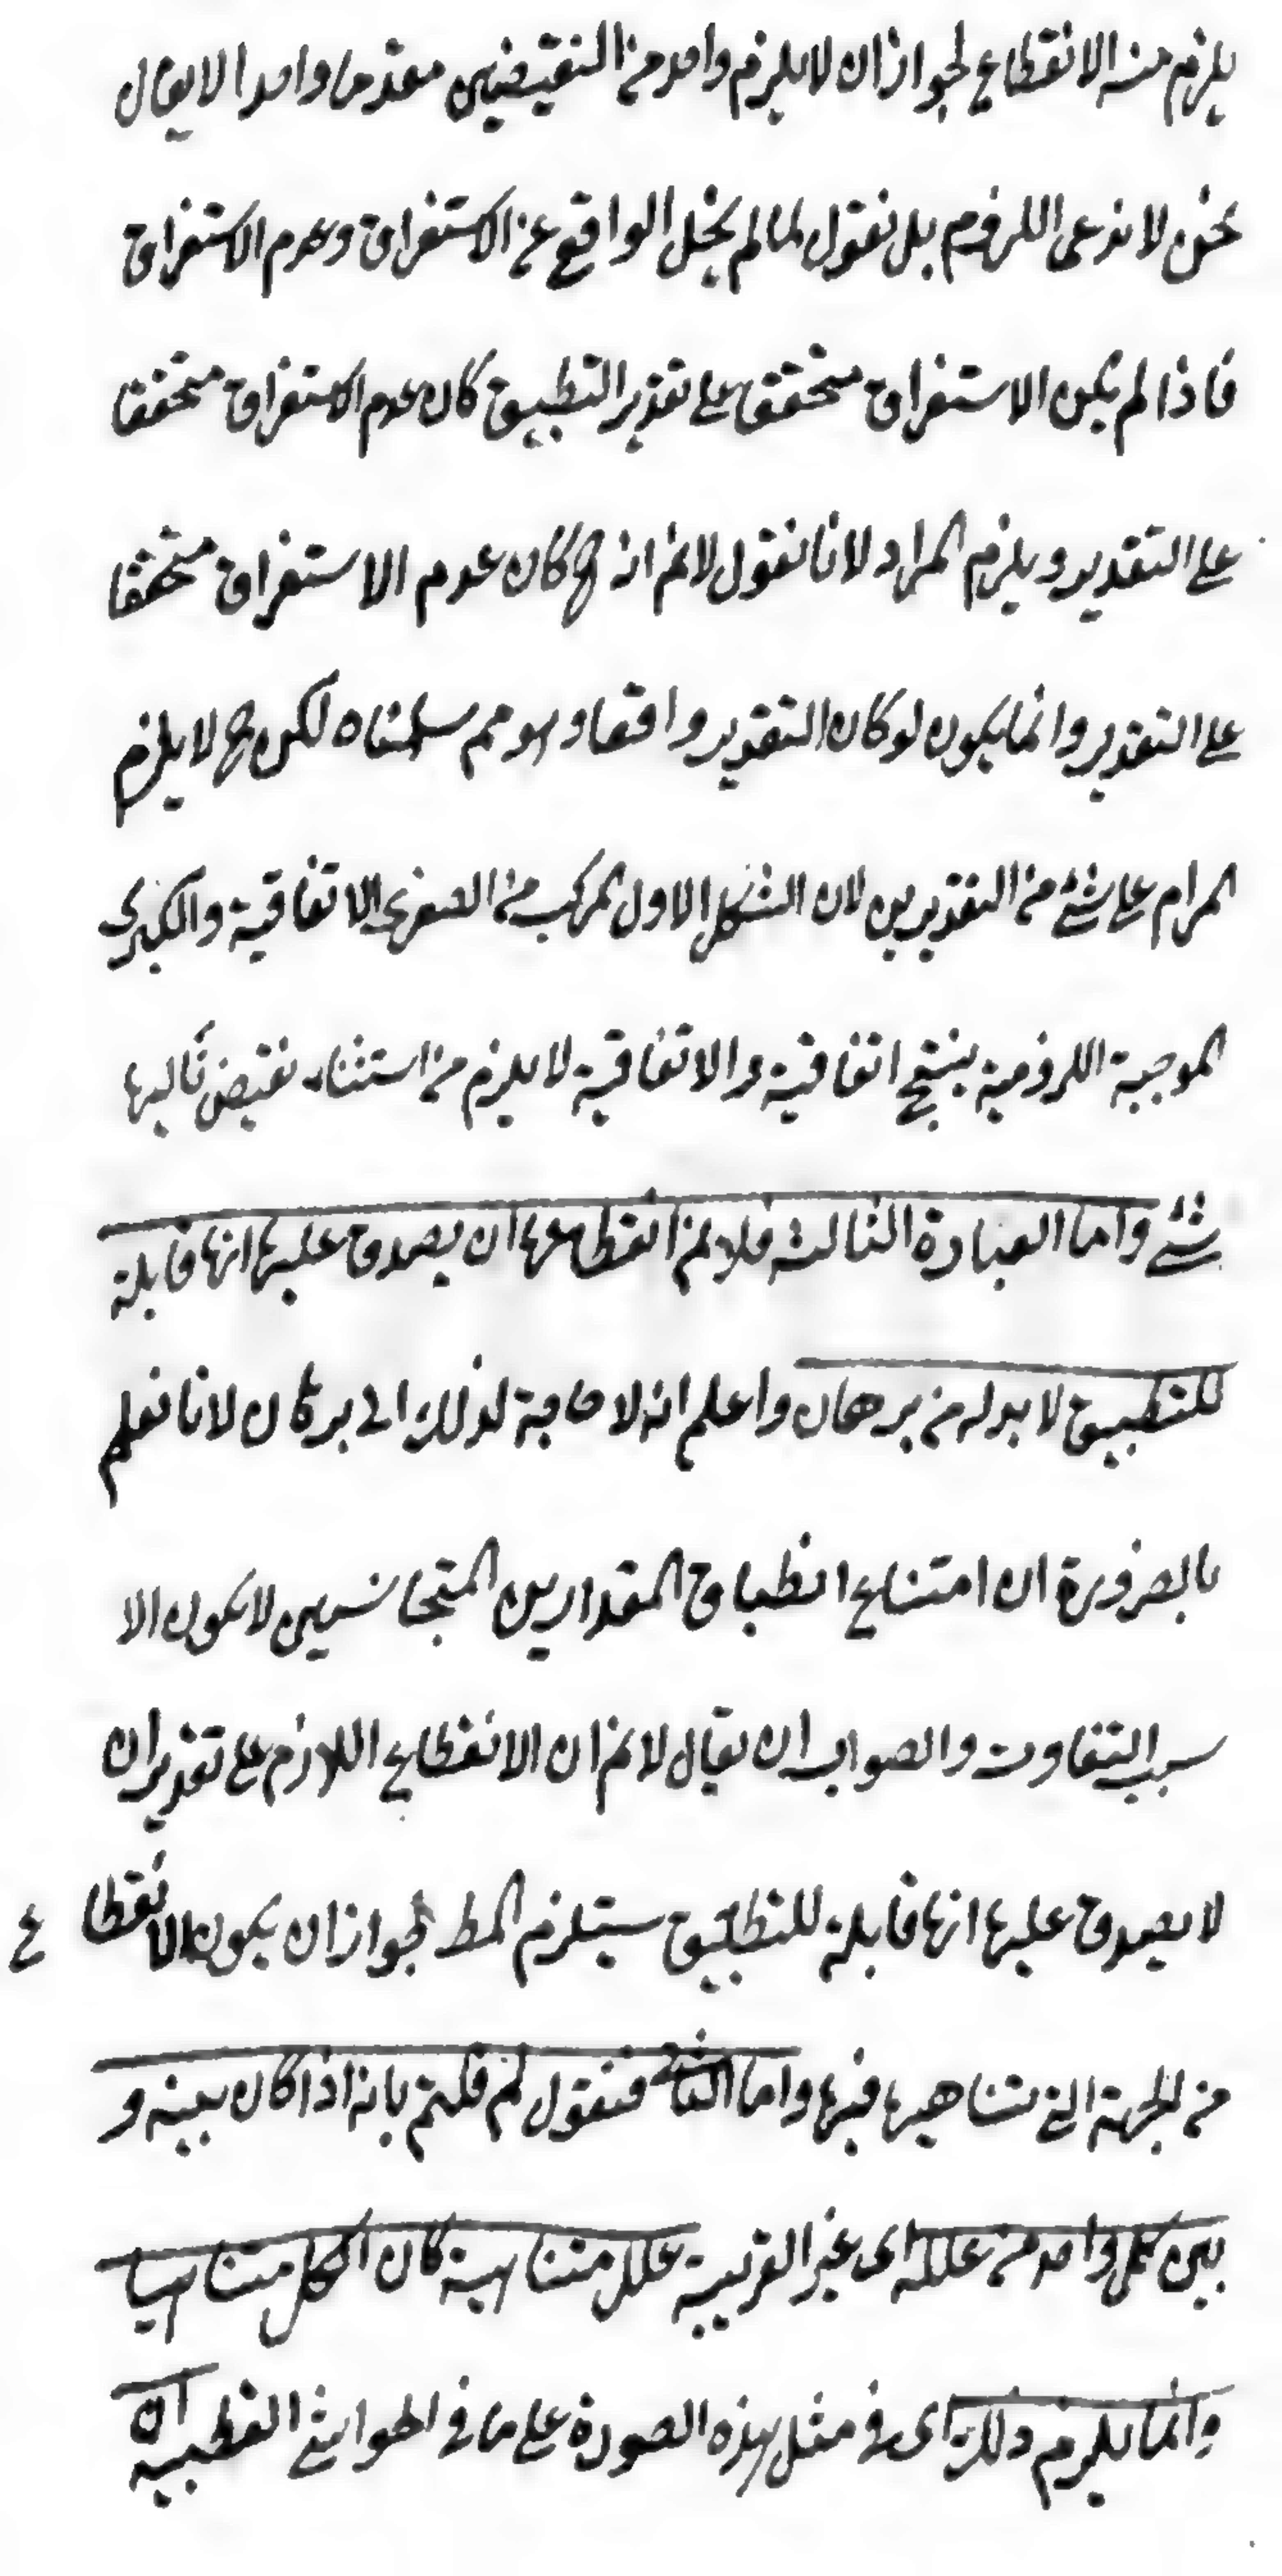 يلزم منه الانقطاع لجواز ان لا يلزم واحد من النقيضين مقدما واحدا لا يقال
نحن لا ندعى اللزوم بل نقول لما لم يخل الواقع عن الاستغراق وعدم الاستغراق
فاذا لم يكن الاستغراق متحققا على تقدير التطبيق كان عدم الاستغراق متحققا
على التقدير ويلزم المراد لانا نقول لانم انه ح كان عدم الاستغراق متحققا
على التقدير وانما يكون لو كان التقدير واقعا وهو مم سلمناه لكن ح لا يلزم
المرام على شئ من التقديرين لان الشكل الاول المركب من الصغرى الاتفاقية والكبرى
الموجبة اللزومية ينتج اتفاقية والاتفاقية لا يلزم من استثناء نقيض تاليها
شئ واما العبارة الثالثة فلانم انقطاعها ان يصدق عليها انها قابلة
للتطبيق لا بد له من برهان واعلم انه لا حاجة لذلك الى برهان لانا نعلم
بالضرورة ان امتناع انطباق المقدارين المتجانسين لا يكون الا
بسبب التفاوت والصواب ان يقال لانم ان الانقطاع اللازم على تقدير ان
لا يصدق عليها انها قابلة للتطبيق يستلزم المط لجواز ان يكون الانقطاع
من الجهة التى تناهيها فيها واما الثانى فنقول لم قلتم بانه اذا كان بينه و
بين كل واحد من علله اى غير القريبة علل متناهية كان الكل متناهيا
وانما يلزم ذلك اى فى مثل هذه الصورة على ما فى الحواشى القطبية ان